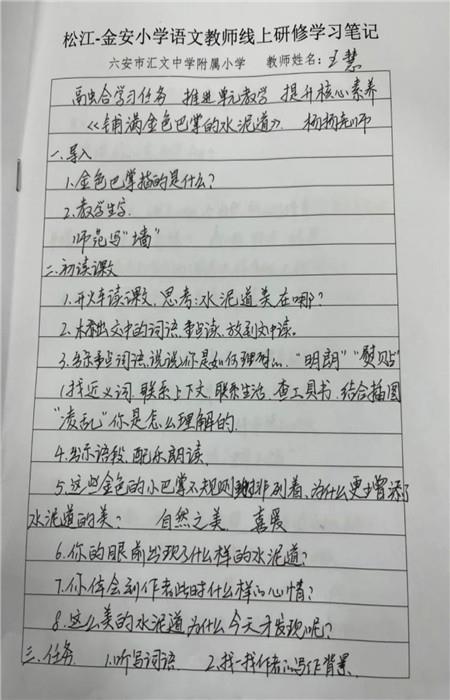 松江-金安小学语文教师线上研修学习笔记
六安市汇文中学附属小学 教师姓名：王慧
融合学习任务 推进单元教学 提升核心素养
《铺满金色巴掌的水泥道》 杨杨老师
一.导入
1.金色巴掌指的是什么？
2.教学生字.
师范写"墙"
二.初读课文
1.开火车读课文,思考:水泥道美在哪?
2.文中的词语,重点读,放到文中读.
3.出示重点词语,说说你是如何理解的."明朗""熨贴"
(找近义词.联系上下文.联系生活.查工具书.结合插图
"凌乱"你是怎么理解的.
4.出示语段,配乐朗读.
5.这些金色的小巴掌不规则排列着,为什么更增添了
水泥道的美? 自然之美. 喜爱
6.你的眼前出现了什么样的水泥道?
7.你体会到作者此时什么样的心情?
8.这么美的水泥道为什么今天才发现呢?
三.任务. 1.听写词语 2.找一找作者的写作背景.